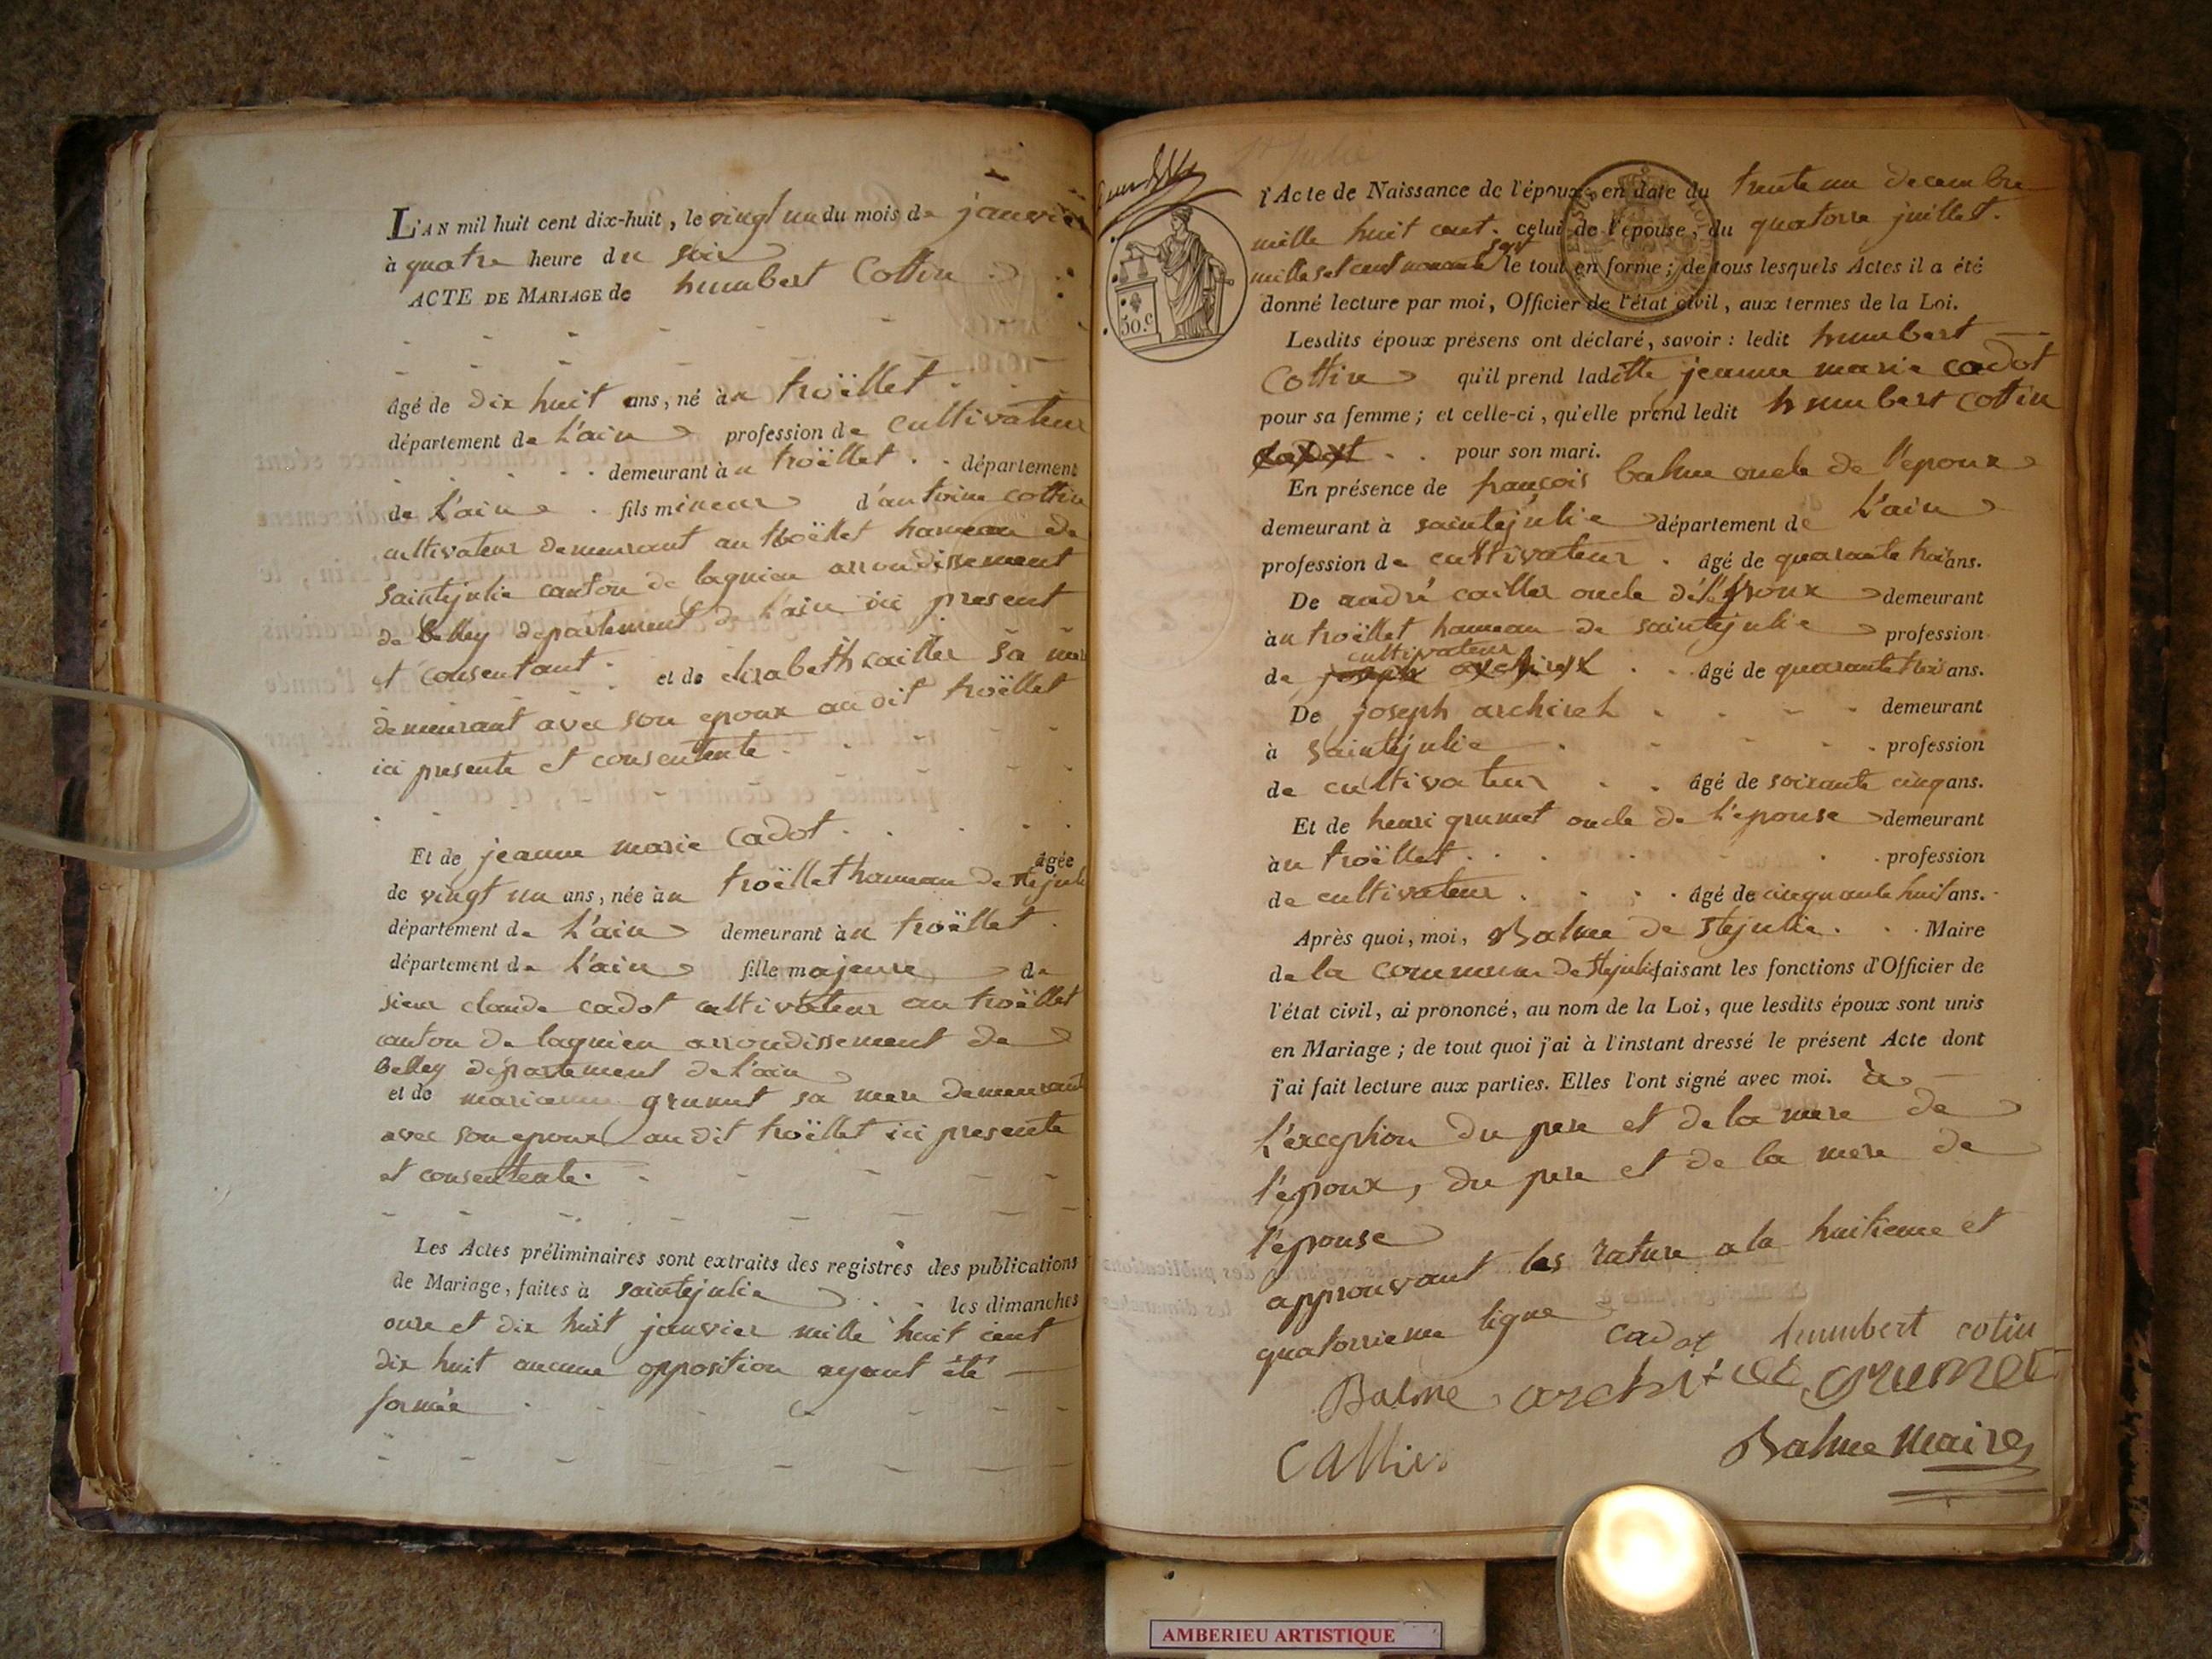 L'AN mil huit cent dix-huit, le vingt un du mois de janvier
à quatre heure du soir
ACTE DE MARIAGE de humbert Cottin
âgé de dix huit ans, né au troëllet
département de L'ain profession de cultivateur
demeurant au troëllet département
de L'ain fils mineur d'antoine cottin
cultivateur demeurant au troëllet hameau de
saintejulie canton de lagnieu arrondissement
de belley departement de L'ain ici present
et consentant et de elisabeth cailler sa mere
demeurant avec son epoux au dit troëllet
ici presente et consentente
Et de jeanne marie Cadot
âgée
de vingt un ans, née au troëllet hameau de stejulie
département de L'ain demeurant au troëllet
département de L'ain fille majeure de
sieur claude cadot cultivateur au troëllet
canton de lagnieu arrondissement de
Belley département de L'ain
et de marianne grumet sa mere demeurant
avec son epoux au dit troëllet ici presente
et consentente
Les Actes préliminaires sont extraits des registres des publications
de Mariage, faites à saintejulie les dimanches
onze et dix huit janvier mille huit cent
dix huit aucune opposition ayant été
formée
l'Acte de Naissance de l'époux, en date du trente un decembre
mille huit cent. celui de l'épouse, du quatorze juillet.
mille set cent nonante set le tout en forme; de tous lesquels Actes il a été
donné lecture par moi, Officier de l'état civil, aux termes de la Loi.
50.c
Lesdits époux présens ont déclaré, savoir: ledit humbert
Cottin qu'il prend ladette jeanne marie cadot
pour sa femme; et celle-ci, qu'elle prend ledit humbert cottin
cadot pour son mari.
En présence de françois balme oncle de l'epoux
demeurant à saintejulie département de L'ain
profession de cultivateur âgé de quarante huit ans.
De andré cailler oncle de l'époux demeurant
au troëllet hameau de saintejulie profession
cultivateur
de joseph archirel âgé de quarante trois ans.
De joseph archirel demeurant
à saintejulie profession
de cultivateur âgé de soixante cinq ans.
Et de henri grumet oncle de L'epouse demeurant
au troëllet profession
de cultivateur âgé de cinquante huit ans.
Après quoi, moi, Balme de stejulie Maire
de la commune de stejulie faisant les fonctions d'Officier de
l'état civil, ai prononcé, au nom de la Loi, que lesdits époux sont unis
en Mariage; de tout quoi j'ai à l'instant dressé le présent Acte dont
j'ai fait lecture aux parties. Elles l'ont signé avec moi. à
L'exception du pere et de la mere de
l'epoux, du pere et de la mere de
l'epouse
approuvant les rature a la huitieme et
quatorzieme ligne
cadot humbert cotin
Balme archirel grumet
CAllier
Balme Maire
AMBERIEU ARTISTIQUE